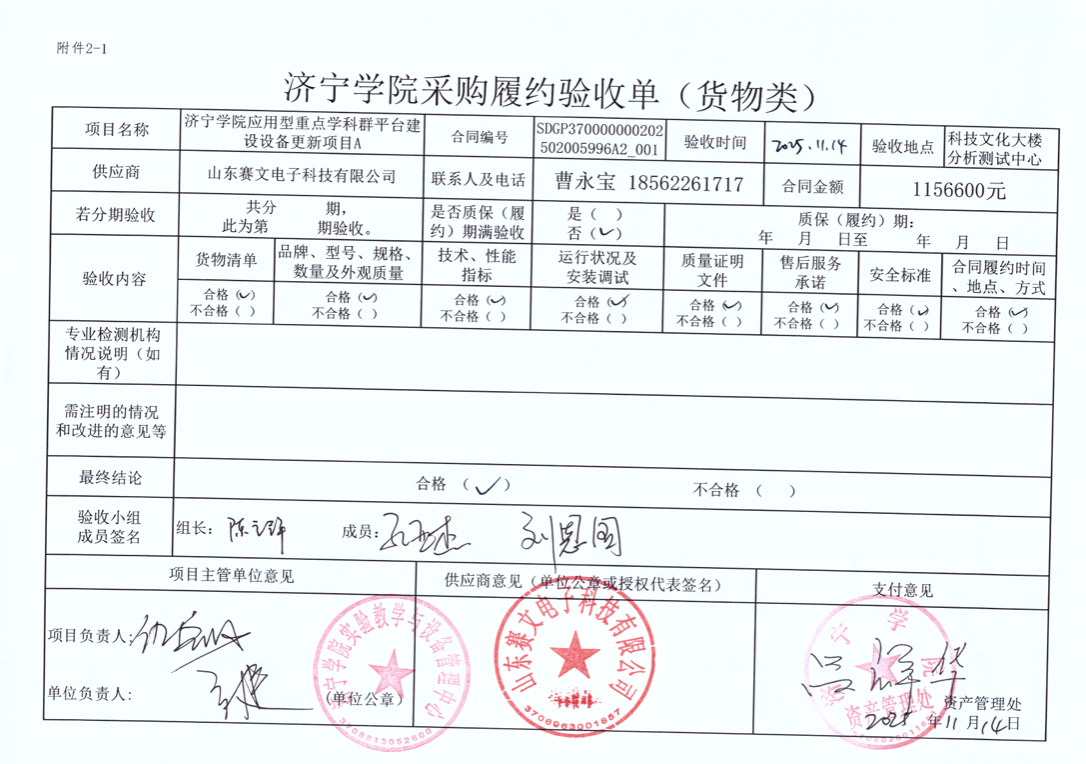 附件2-1
济宁学院采购履约验收单（货物类）
项目名称
济宁学院应用型重点学科群平台建
设设备更新项目A
合同编号
SDGP370000000202
502005996A2_001
验收时间
2025.11.14
验收地点
科技文化大楼
分析测试中心
供应商
山东赛文电子科技有限公司
联系人及电话
曹永宝 18562261717
合同金额
1156600元
若分期验收
共分 期，
此为第 期验收。
是否质保（履
约）期满验收
是（ ）
否（✓）
质保（履约）期：
年 月 日至 年 月 日
验收内容
货物清单
品牌、型号、规格、
数量及外观质量
技术、性能
指标
运行状况及
安装调试
质量证明
文件
售后服务
承诺
安全标准
合同履约时间
、地点、方式
合格（✓）
不合格（ ）
合格（✓）
不合格（ ）
合格（✓）
不合格（ ）
合格（✓）
不合格（ ）
合格（✓）
不合格（ ）
合格（✓）
不合格（ ）
合格（✓）
不合格（ ）
合格（✓）
不合格（ ）
专业检测机构
情况说明（如
有）
需注明的情况
和改进的意见等
最终结论
合格 （✓）
不合格 （ ）
验收小组
成员签名
组长：
成员：
刘恩国
项目主管单位意见
供应商意见（单位公章或授权代表签名）
支付意见
项目负责人：
单位负责人：
（单位公章）
济宁学院实验教学与设备管理中心
3708813052600
山东赛文电子科技有限公司
3706983001857
济宁学院
资产管理处
资产管理处
2025 年 11 月 14 日